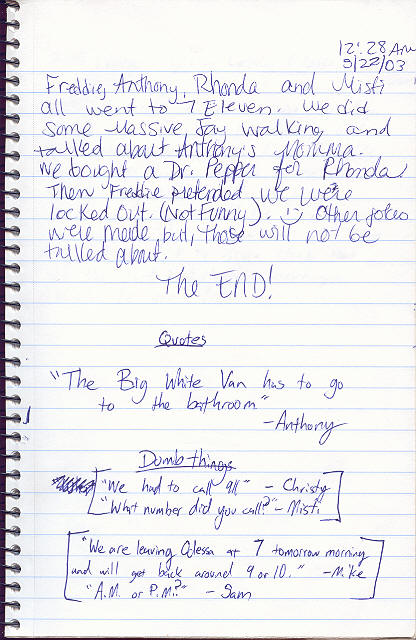 12:28 AM
5/22/03
Freddie, Anthony, Rhonda and Misti
all went to 7 Eleven. We did
some Massive Jay walking and
talked about Anthony's Momma.
We bought a Dr. Pepper for Rhonda
Then Freddie pretended we were
locked Out. (Not Funny). :) Other jokes
were made but, those will not be
talked about.
The END!
Quotes
"The Big White Van has to go
to the bathroom"
-Anthony
Dumb things
"We had to call 911" - Christy
"What number did you call?" - Misti
"We are leaving Odessa at 7 tomorrow morning
and will get back around 9 or 10." -Mike
"A.M. or P.M.?" - Sam